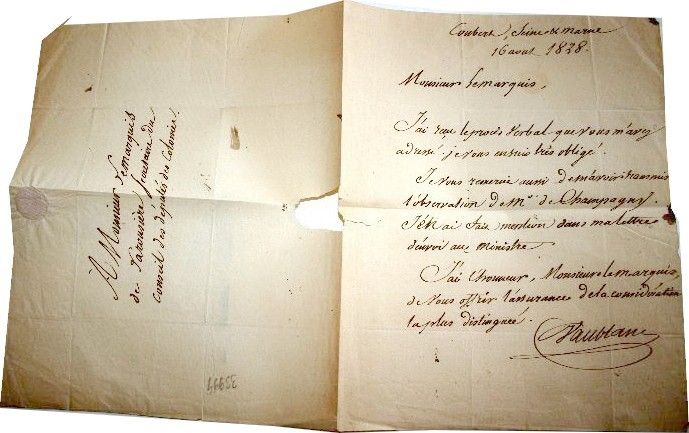 Coubert, Seine et marne
16 aout 1828.
Monsieur Lemarquis,
J'ai reçu le procès verbal que vous m'avez
adressé. je vous en suis très obligé.
Je vous remercie aussi de m'avoir transmis
l'observation de Mr. de Champagny.
J'en ai fait mention dans ma lettre
d'envoi au ministre
J'ai l'honneur, Monsieur le marquis,
de Vous offrir l'assurance de la considération
la plus distinguée.
Vaublanc
À Monsieur Lemarquis
de Secrétaire du
conseil des députés des Colonies.
33999